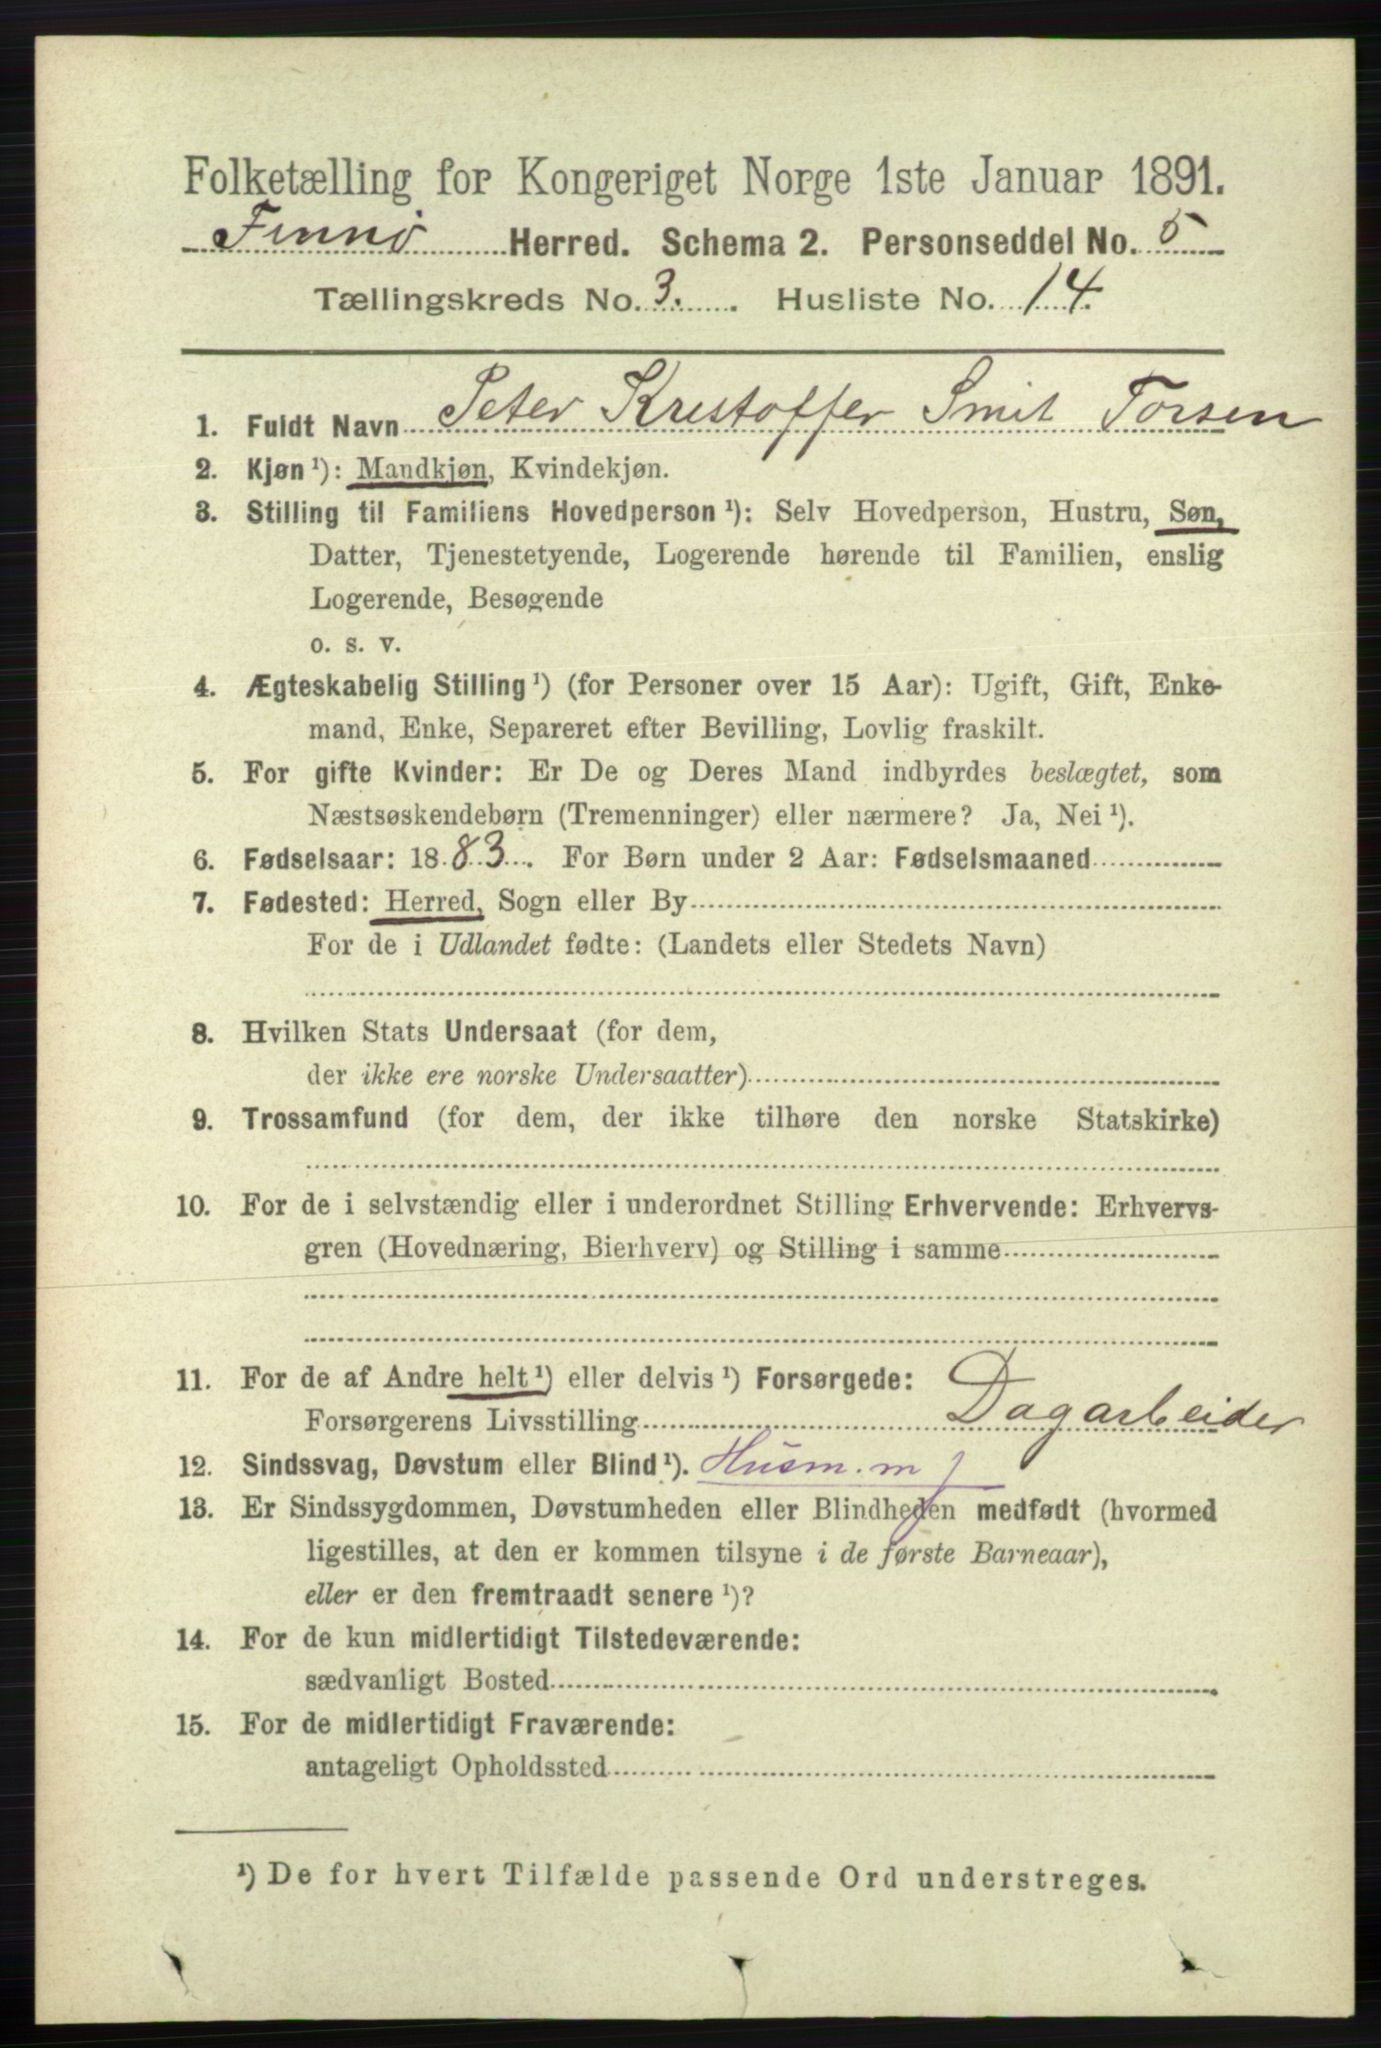 Folketælling for Kongeriget Norge 1ste Januar 1891.
Finnö Herred. Schema 2. Personseddel No. 5
Tællingskreds No. 3. Husliste No. 14.
1. Fuldt Navn Peter Kristoffer Smit Torsen
2. Kjøn ¹): Mandkjøn, Kvindekjøn.
3. Stilling til Familiens Hovedperson ¹): Selv Hovedperson, Hustru, Søn,
Datter, Tjenestetyende, Logerende hørende til Familien, enslig
Logerende, Besøgende
o. s. v.
4. Ægteskabelig Stilling ¹) (for Personer over 15 Aar): Ugift, Gift, Enke-
mand, Enke, Separeret efter Bevilling, Lovlig fraskilt.
5. For gifte Kvinder: Er De og Deres Mand indbyrdes beslægtet, som
Næstsøskendebørn (Tremenninger) eller nærmere? Ja, Nei ¹).
6. Fødselsaar: 1883. For Børn under 2 Aar: Fødselsmaaned
7. Fødested: Herred, Sogn eller By
For de i Udlandet fødte: (Landets eller Stedets Navn)
8. Hvilken Stats Undersaat (for dem,
der ikke ere norske Undersaatter)
9. Trossamfund (for dem, der ikke tilhøre den norske Statskirke)
10. For de i selvstændig eller i underordnet Stilling Erhvervende: Erhvervs-
gren (Hovednæring, Bierhverv) og Stilling i samme
11. For de af Andre helt ¹) eller delvis ¹) Forsørgede:
Forsørgerens Livsstilling Dagarbeider
12. Sindssvag, Døvstum eller Blind ¹). Husm. m j
13. Er Sindssygdommen, Døvstumheden eller Blindheden medfødt (hvormed
ligestilles, at den er kommen tilsyne i de første Barneaar),
eller er den fremtraadt senere ¹)?
14. For de kun midlertidigt Tilstedeværende:
sædvanligt Bosted
15. For de midlertidigt Fraværende:
antageligt Opholdssted
¹) De for hvert Tilfælde passende Ord understreges.